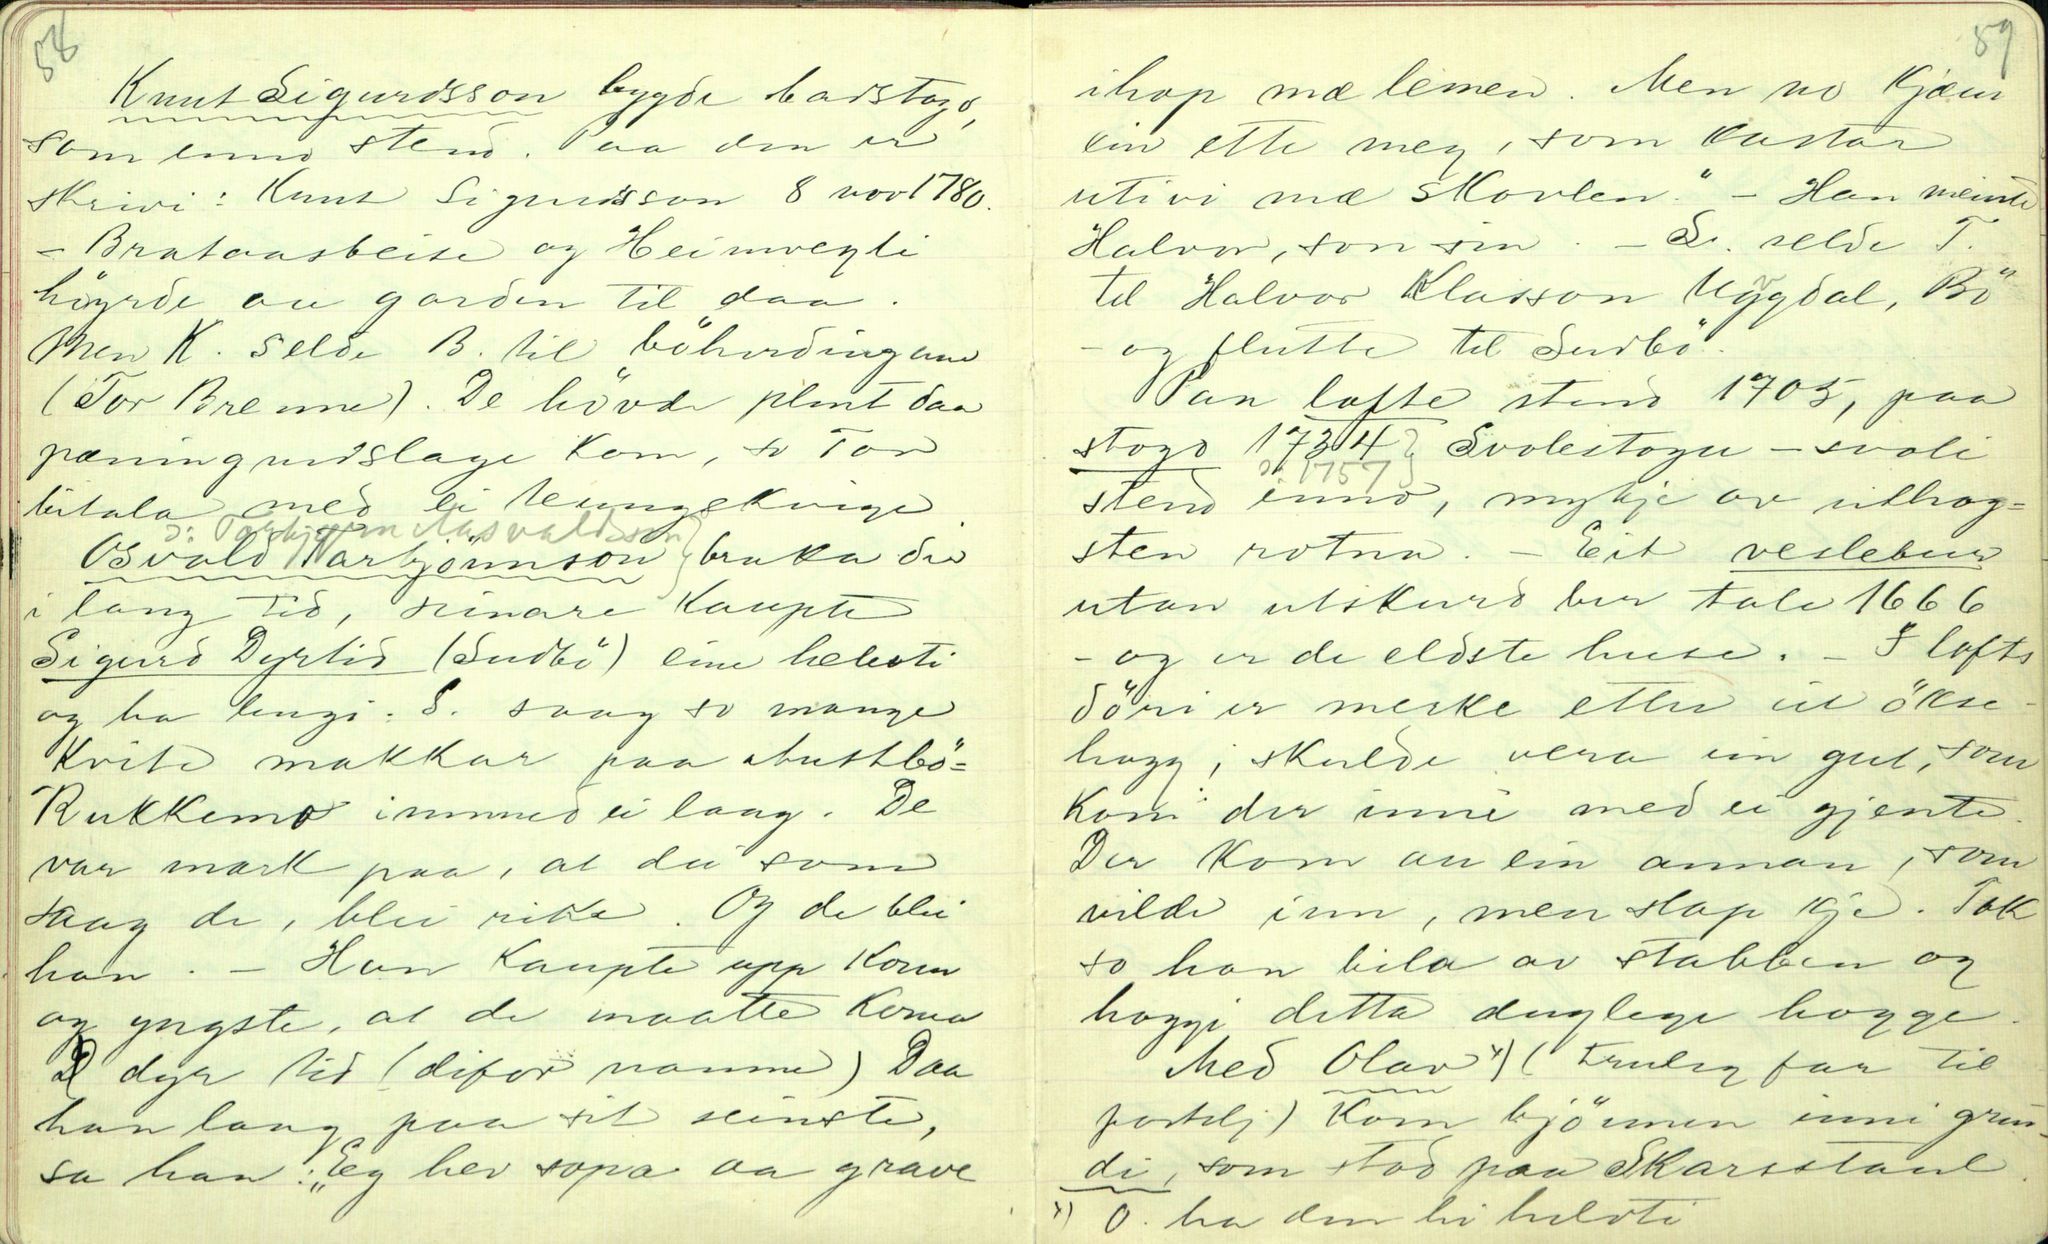 58
Knut Sigurdsson bygde badstogo,
som enno stend. Paa den er
skrivi: Knut Sigurdsson 8 nov 1780.
- Brataasbeite og Heimvegli
höyrde au garden til daa.
Men K. selde B. til böherdingane
(Tor Brenne). De hövde plent daa
pæningudslage kom, so Tor
bitala med ei ungekvige.
ɔ: Torbjørn Aasvaldsson}
Osvald Tarbjönnson bruka der
i lang tid, seinare kaupte
Sigurd Dyrtid (Sudbö) eine helvti
og ha lengi. S. saag so mange
kvite makkar paa Austbö-
Rukkemo immed ei laag. De
var mark paa, at dei som
saag de, blei rike. Og de blei
han. - Han kaupte upp korn
og yngste, at de maatte koma
dyr tid (difor namne) Daa
han laag paa sit seinste,
sa han: „Eg hev sopa aa grave
59
ihop mæ leimen. Men no kjæm
ein ette meg, som kastar
utivi mæ skovlen." - Han meinte
Halvor, son sin. - S. selde T.
til Halvor Klasson Uvgdal, Bö
- og flutte til Sudbö.
Paa lofte stend 1705, paa
stogo 1734} Svolestogu - svoli
ɔ: 1757}
stend enno, mykje av uthog-
sten rotna. - Eit veslebur
utan utskurd ber tale 1666
- og er de eldste huse. - I lofts
döri er merke etter eit ökse-
hogg; skulde vera ein gut, som
kom der inne med ei gjente.
Der kom au ein annan, som
vilde inn, men slap kje. Tok
so han bila av stabben og
hoggi detta duglege hogge.
Med Olav x) (truleg far til
fortelj) kom bjönnen inni grin-
di, som stod paa Skarsstaul.
x) O. ha den hi helvti